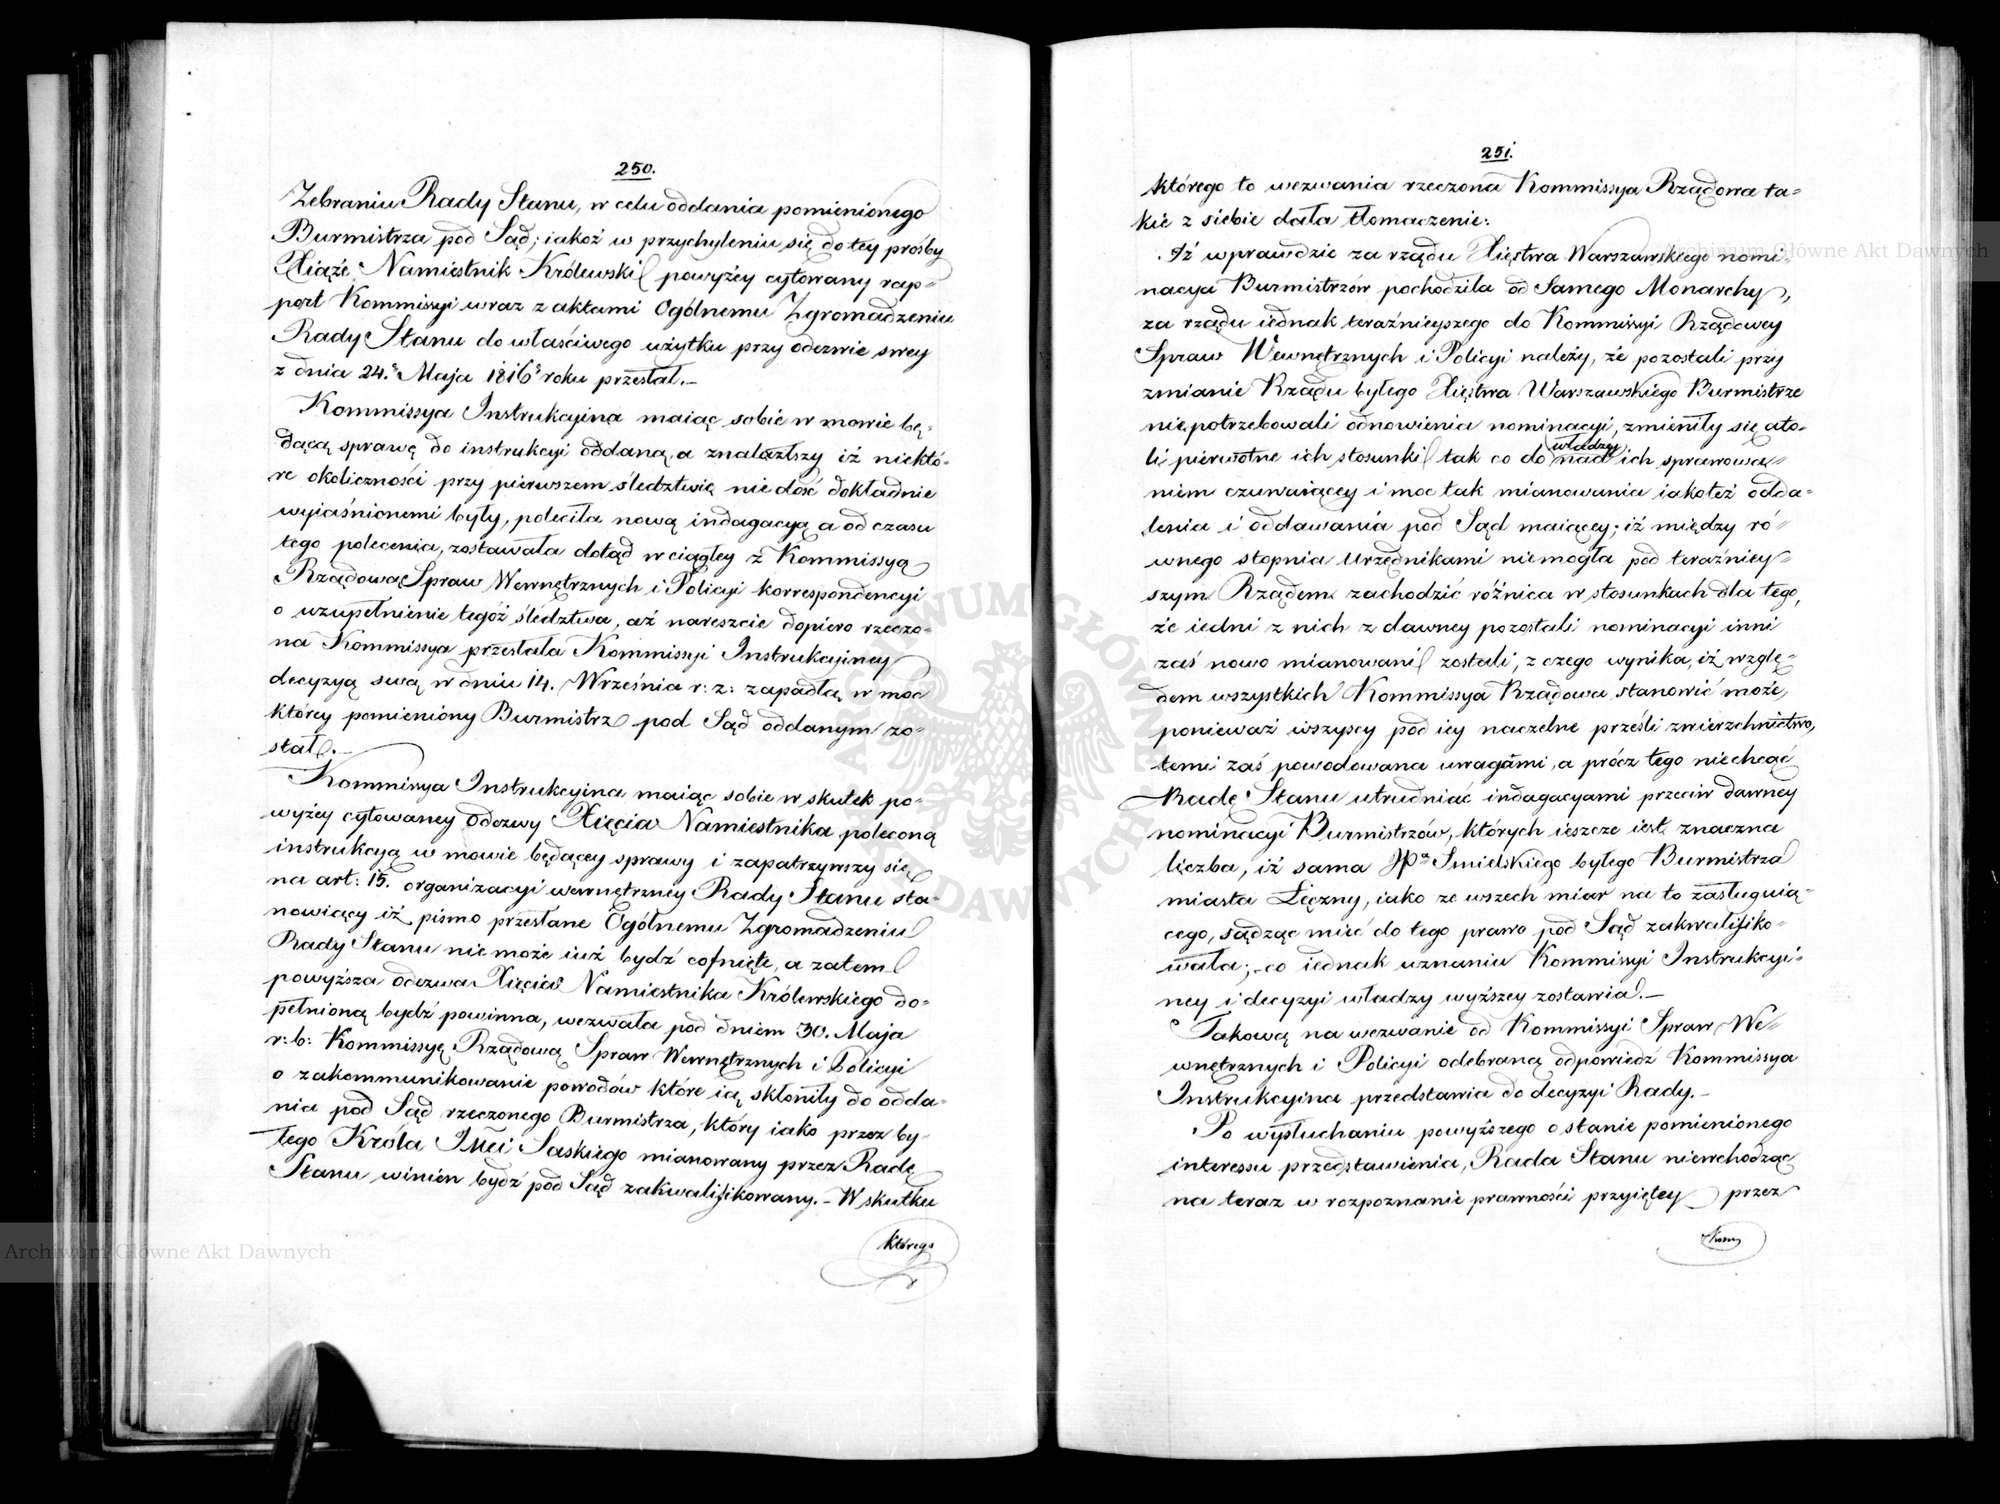 250.
Zebraniu Rady Stanu, w celu oddania pomienionego
Burmistrza pod Sąd; iakoż w przychyleniu się do tey prośby
Xiąże Namiestnik Królewski powyżey cytowany rap-
port Kommissyi wraz z aktami Ogólnemu Zgromadzeniu
Rady Stanu do właściwego użytku przy odezwie swey
z dnia 24. Maja 1816 roku przesłał.-
Kommissya Instrukcyina maiąc sobie w mowie bę-
dącą sprawę do instrukcyi oddaną, a znalazłszy iż niektó-
re okoliczności przy pierwszem śledztwie nie dość dokładnie
wyiaśnionemi były, poleciła nową indagacyą a od czasu
tego polecenia, zostawała dotąd w ciągłey z Kommissyą
Rządową Spraw Wewnętrznych i Policyi korrespondencyi
o uzupełnienie tegóż śledztwa, aż nareszcie dopiero rzeczo-
na Kommissya przesłała Kommissyi Instrukcyiney
decyzyą swą w dniu 14. Września r: z: zapadłą, w moc
którey pomieniony Burmistrz pod Sąd oddanym zo-
stał.-
Kommissya Instrukcyina maiąc sobie w skutek po-
wyżey cytowaney Odezwy Xięcia Namiestnika poleconą
instrukcyą w mowie będącey sprawy i zapatrzywszy się
na art: 15. organizacyi wewnętrzney Rady Stanu sta-
nowiący iż pismo przesłane Ogólnemu Zgromadzeniu
Rady Stanu nie może iuż bydź cofnięte, a zatem
powyższa odezwa Xięcia Namiestnika Królewskiego do-
pełnioną bydź powinna, wezwała pod dniem 30. Maja
r: b: Kommissyę Rządową Spraw Wewnętrznych i Policyi
o zakommunikowanie powodów które ią skłoniły do odda-
nia pod Sąd rzeczonego Burmistrza, który iako przez by-
łego Króla Imci Saskiego mianowany przez Radę
Stanu winien bydź pod Sąd zakwalifikowany.- W skutku
którego
251.
którego to wezwania rzeczona Kommissya Rządowa ta-
kie z siebie dała tłomaczenie:
Iż wprawdzie za rządu Xięstwa Warszawskiego nomi-
nacya Burmistrzów pochodziła od Samego Monarchy,
za rządu iednak teraźnieyszego do Kommissyi Rządowey
Spraw Wewnętrznych i Policyi należy, że pozostali przy
zmianie Rządu byłego Xięstwa Warszawskiego Burmistrze
nie potrzebowali odnowienia nominacyi, zmieniły się ato-
li pierwotne ich stosunki tak co do władzy nad ich sprawowa-
niem czuwaiącey i moc tak mianowania iakoteż odda-
lenia i oddawania pod Sąd maiącey; iż między ró-
wnego stopnia Urzędnikami nie mogła pod teraźniey-
szym Rządem zachodzić różnica w stosunkach dla tego,
że iedni z nich z dawney pozostali nominacyi inni
zaś nowo mianowani zostali, z czego wynika, iż wzglę-
dem wszystkich Kommissya Rządowa stanowić może,
ponieważ wszyscy pod iey naczelne przeszli zwierzchnictwo,
temi zaś powodowana uwagami, a prócz tego niechcąc
Radę Stanu utrudniać indagacyami przeciw dawney
nominacyi Burmistrzów, których ieszcze iest znaczna
liczba, iż sama JPa Smielskiego byłego Burmistrza
miasta Łęczny, iako ze wszech miar na to zasługuią-
cego, sądząc mieć do tego prawo pod Sąd zakwalifiko-
wała; co iednak uznaniu Kommissyi Instrukcyi-
ney i decyzyi władzy wyższey zostawia.-
Takową na wezwanie od Kommissyi Spraw We-
wnętrznych i Policyi odebraną odpowiedź Kommissya
Instrukcyina przedstawia do decyzyi Rady.-
Po wysłuchaniu powyższego o stanie pomienionego
interessu przedstawienia, Rada Stanu niewchodząc
na teraz w rozpoznanie prawności przyiętey przez
Kom
Archiwum Główne Akt Dawnych
Archiwum Główne Akt Dawnych
ARCHIWUM GŁÓWNE AKT DAWNYCH